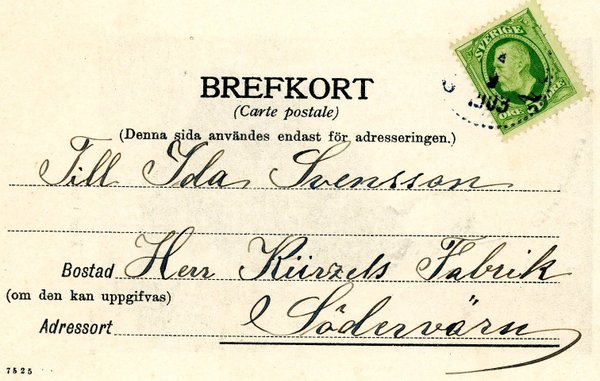 SVERIGE
1903
ÖRE
BREFKORT
(Carte postale)
(Denna sida användes endast för adresseringen.)
Till Ida Svensson
Bostad Herr Kürzels Fabrik
(om den kan uppgifvas)
Adressort Södervärn
7525